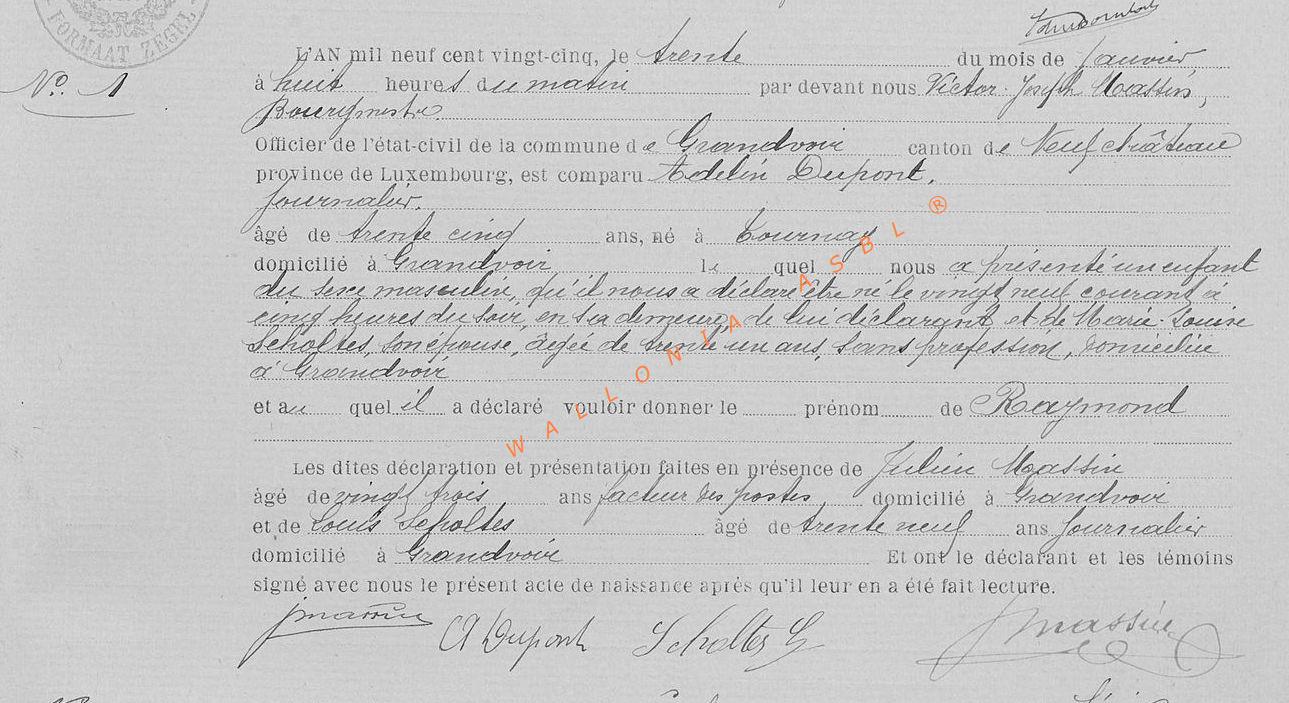 FORMAAT ZEGEL
L'AN mil neuf cent vingt-cinq, le trente du mois de Janvier,
N°. 1
à huit heures du matin par devant nous Victor-Joseph Massin,
Bourgmestre
Officier de l'état-civil de la commune de Grandvoir canton de Neufchâteau
province de Luxembourg, est comparu Adelin Dupont,
Journalier,
âgé de trente cinq ans, né à Tournay
domicilié à Grandvoir lequel nous a présenté un enfant
du sexe masculin, qu'il nous a déclaré être né le vingt neuf courant à
cinq heures du soir, en sa demeure, de lui déclarant et de Marie-Louise
Scholtes, son épouse, âgée de trente un ans, sans profession, domiciliée
à Grandvoir
et au quel il a déclaré vouloir donner le prénom de Raymond
WALLONIA ASBL ®
Les dites déclaration et présentation faites en présence de Julien Massin
âgé de vingt trois ans facteur des postes, domicilié à Grandvoir
et de Louis Scholtes âgé de trente neuf ans Journalier
domicilié à Grandvoir Et ont le déclarant et les témoins
signé avec nous le présent acte de naissance après qu'il leur en a été fait lecture.
JMassin A Dupont Scholtes L Massin